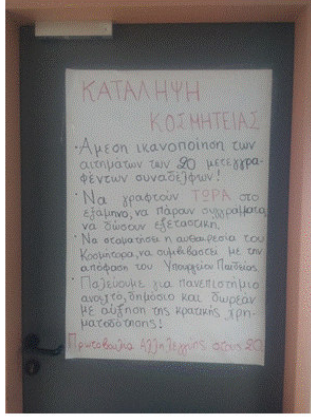 ΚΑΤΑΛΗΨΗ
ΚΟΣΜΗΤΕΙΑΣ
• Άμεση ικανοποίηση των
αιτημάτων των 20 μετεγγρα-
φέντων συναδέλφων!
• Να γραφτούν ΤΩΡΑ στο
εξάμηνο, να πάρουν συγγράματα,
να δώσουν εξεταστική.
• Να σταματήσει η αυθαιρεσία του
Κοσμήτορα, να συμβιβαστεί με την
απόφαση του Υπουργείου Παιδείας.
• Παλεύουμε για πανεπιστήμιο
ανοιχτό, δημόσιο και δωρεάν
με αύξηση της κρατικής χρη-
ματοδότησης!
Πρωτοβουλία Αλληλεγγύης στους 20